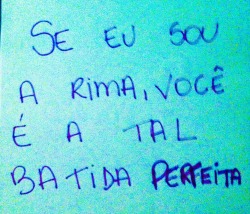 SE EU SOU
A RIMA, VOCÊ
É A TAL
BATIDA PERFEITA